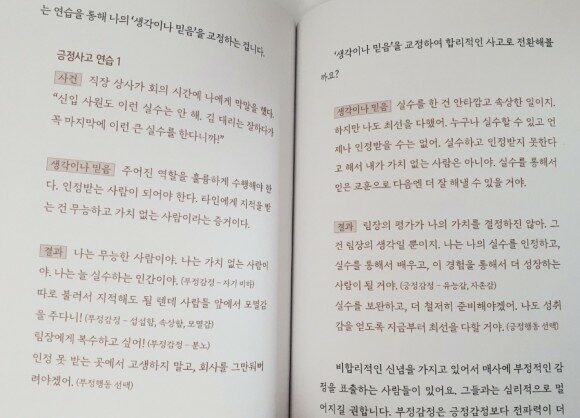 는 연습을 통해 나의 '생각이나 믿음'을 교정하는 겁니다.
긍정사고 연습 1
사건 직장 상사가 회의 시간에 나에게 막말을 했다.
"신입 사원도 이런 실수는 안 해. 김 대리는 잘하다가
꼭 마지막에 이런 큰 실수를 한다니까!"
생각이나 믿음 주어진 역할을 훌륭하게 수행해야 한
다. 인정받는 사람이 되어야 한다. 타인에게 지적을 받
는 건 무능하고 가치 없는 사람이라는 증거이다.
결과 나는 무능한 사람이야. 나는 가치 없는 사람이
야. 나는 늘 실수하는 인간이야. (부정감정 – 자기 비하)
따로 불러서 지적해도 될 텐데 사람들 앞에서 모멸감
을 주다니! (부정감정 – 섭섭함, 속상함, 모멸감)
팀장에게 복수하고 싶어! (부정감정 – 분노)
인정 못 받는 곳에서 고생하지 말고, 회사를 그만둬버
려야겠어. (부정행동 선택)
'생각이나 믿음'을 교정하여 합리적인 사고로 전환해볼
까요?
생각이나 믿음 실수를 한 건 안타깝고 속상한 일이지.
하지만 나도 최선을 다했어. 누구나 실수할 수 있고 언
제나 인정받을 수는 없어. 실수하고 인정받지 못한다
고 해서 내가 가치 없는 사람은 아니야. 실수를 통해서
얻은 교훈으로 다음엔 더 잘 해낼 수 있을 거야.
결과 팀장의 평가가 나의 가치를 결정하진 않아. 그
건 팀장의 생각일 뿐이지. 나는 나의 실수를 인정하고,
실수를 통해서 배우고, 이 경험을 통해서 더 성장하는
사람이 될 거야. (긍정감정 – 유능감, 자존감)
실수를 보완하고, 더 철저히 준비해야겠어. 나도 성취
감을 얻도록 지금부터 최선을 다할 거야. (긍정행동 선택)
비합리적인 신념을 가지고 있어서 매사에 부정적인 감
정을 표출하는 사람들이 있어요. 그들과는 심리적으로 멀
어지길 권합니다. 부정감정은 긍정감정보다 전파력이 더